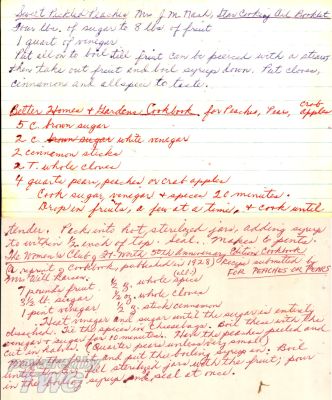 Sweet Pickled Peaches, Mrs. J. M. Nash, Star Cooking Art Booklet
Four lbs. of sugar to 8 lbs of fruit
1 quart of vinegar
Put all on to boil till fruit can be pierced with a straw
then take out fruit and boil syrup down. Put cloves,
cinnamon and allspice to taste.
Better Homes & Gardens Cookbook. for Peaches, Pears, crab apples
5 C. brown sugar
2 C. brown sugar white vinegar
2 cinnamon sticks
2 T. whole cloves
4 quarts pears, peaches or crab apples
Cook sugar, vinegar & spices 20 minutes.
Drop in fruits, a few at a time, & cook until
tender. Pack into hot, sterilized jars, adding syrup
to within ½ inch of top. Seal. Makes 6 pints.
The Woman's Club of Ft. Worth 50th anniversary Edition Cookbook
(a reprint of Cookbook, published in 1928) Recipe submitted by
Mrs. Will
FOR PEACHES OR PEARS
7 pounds fruit ½ oz. whole spice
3½ lb. sugar ½ oz. whole cloves
1 pint vinegar ½ oz. stick cinnamon
Heat vinegar and sugar until the sugar is entirely
dissolved. Tie the spices in cheesebag. Boil these with the
vinegar & sugar for 10 minutes. Have the peaches peeled and
cut in halves. (Quarter pears unless very small)
and put the boiling syrup in. Boil
until Fill sterilized jars with the fruit; pour
in the syrup and seal at once.